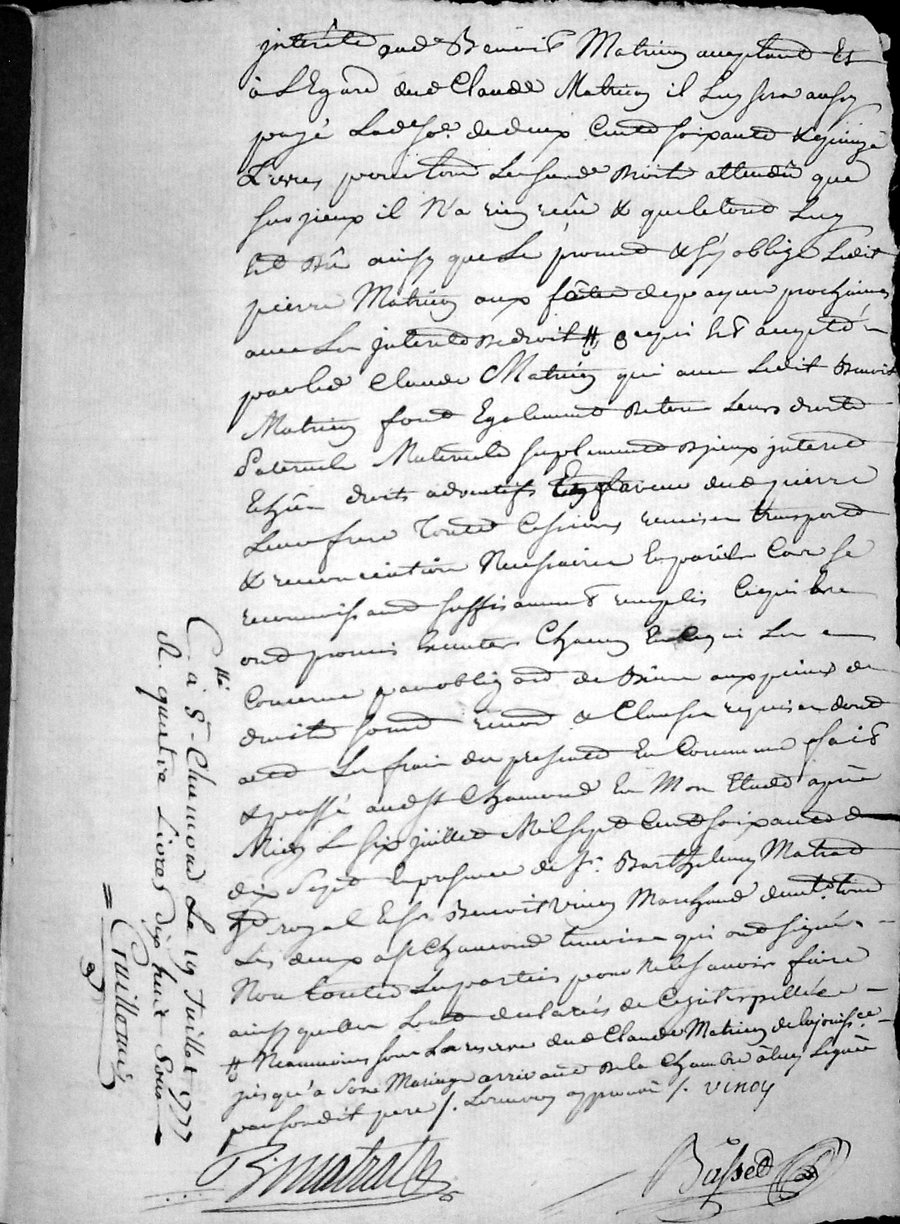 intérêts aud. Benoist Matricon acceptant Et
à L'Egard dud Claude Matricon il luy sera aussy
payé Lad. so.e de deux Cents soixante & quinze
Livres pour tous Lesd. Droits attendû que
sur jceux il N'a rien reçû & que le tout Luy
est Dû ainsy que Le promet & s'y oblige Ledit
pierre Matricon aux fêtes de pasques prochaines
avec Les jnterets de droit # ce qui Est accepté
par led Claude Matricon qui avec Ledit Benoit
Matricon font Egalement De tous Leurs droits
Paternels Maternels suplement d'jceux jnterets
Echûs droits adventifs En faveur dud pierre
Leur frere Toutes Cessions remises transports
& renonciation Necessaires En pareil Cas se
reconnoissant suffisamment remplis Ce qui
ont promis Executer Chacun En ce qui Les
Concerne par obligaon de Biens aux peines de
droit soum. renon. & Clauses requises dont
acte Les frais du present En Commun fait
& passé aud St Chamond En Mon Etude après
Midy Le six juillet Mil sept Cent soixante
dix sept En presence de Sr. Barthelemy Matrat
royal Et Sr. Benoit Vinoy Marchand
Les deux a St Chamond temoins qui ont signé
Non toutes Les parties pour ne le sçavoir faire
ainsy qu'elles L'ont declarés de Ce jnterpellées
# Neanmoins sous La reserve dud Claude Matricon de la jouiss.ce
jusqu'à son Mariage arrivant De la Chambre à luy Leguée
par sondit pere /. Le renvoy approuvé /. vinoy
B. matrat
Basset
C.llé à St. Chamond Le 19 Juillet 1777
R. quatre Livres dix huit Sous
Guillemin